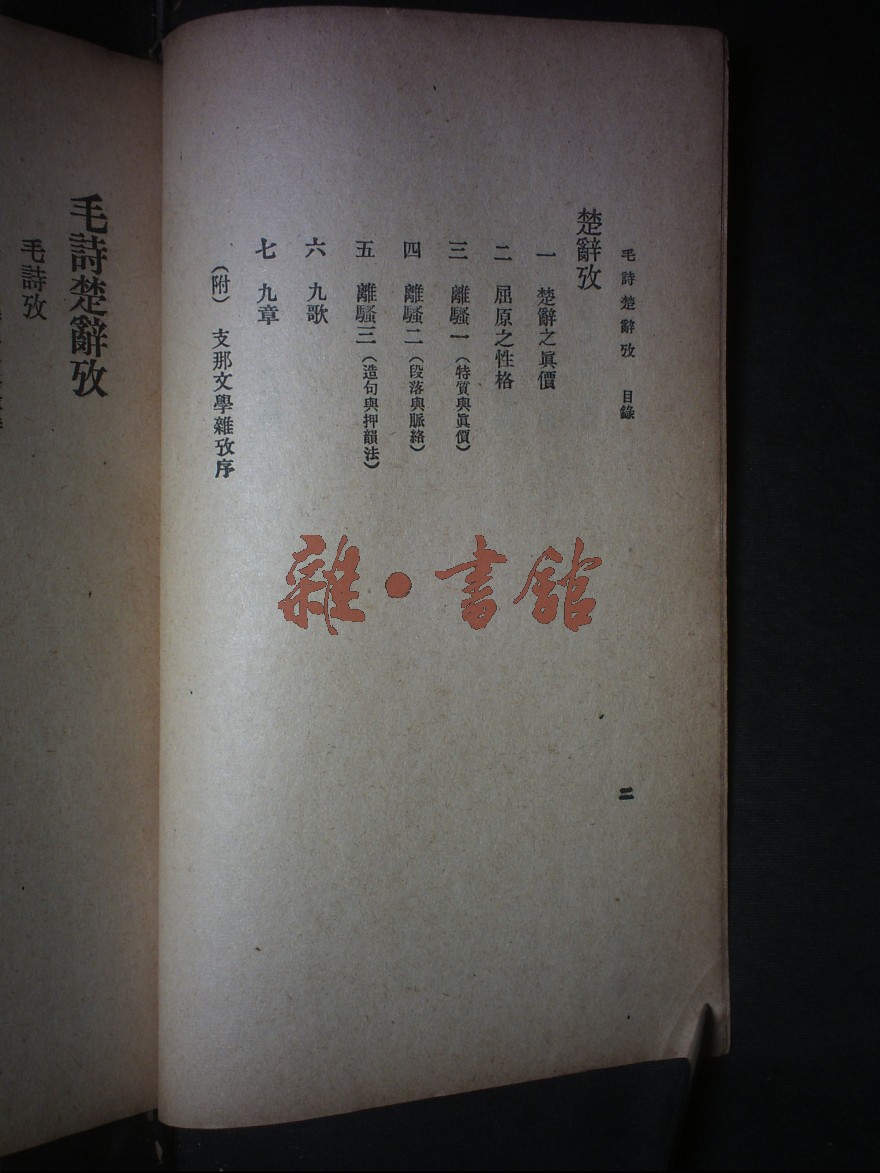 毛詩楚辭攷　目錄
二
楚辭攷
一　楚辭之眞價
二　屈原之性格
三　離騷一（特質與眞價）
四　離騷二（段落與脈絡）
五　離騷三（造句與押韻法）
六　九歌
七　九章
（附）　支那文學雜攷序
雜・書館
毛詩楚辭攷
毛詩攷